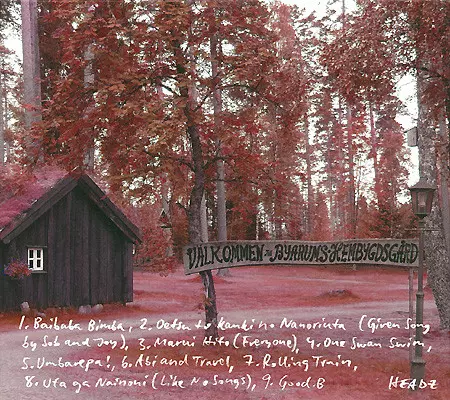 VÄLKOMMEN TILL BYARUMS HEMBYGDSGÅRD
1. Baibaba Bimba, 2. Oetsu to Kanki no Nanoriuta (Given Song
by Sob and Joy), 3. Marui Hito (Freeyone), 4. One Swan Swim,
5. Umbarepa!, 6. Abi and Travel, 7. Rolling Train,
8. Uta ga Nainoni (Like No Songs), 9. Good.B
HEADZ